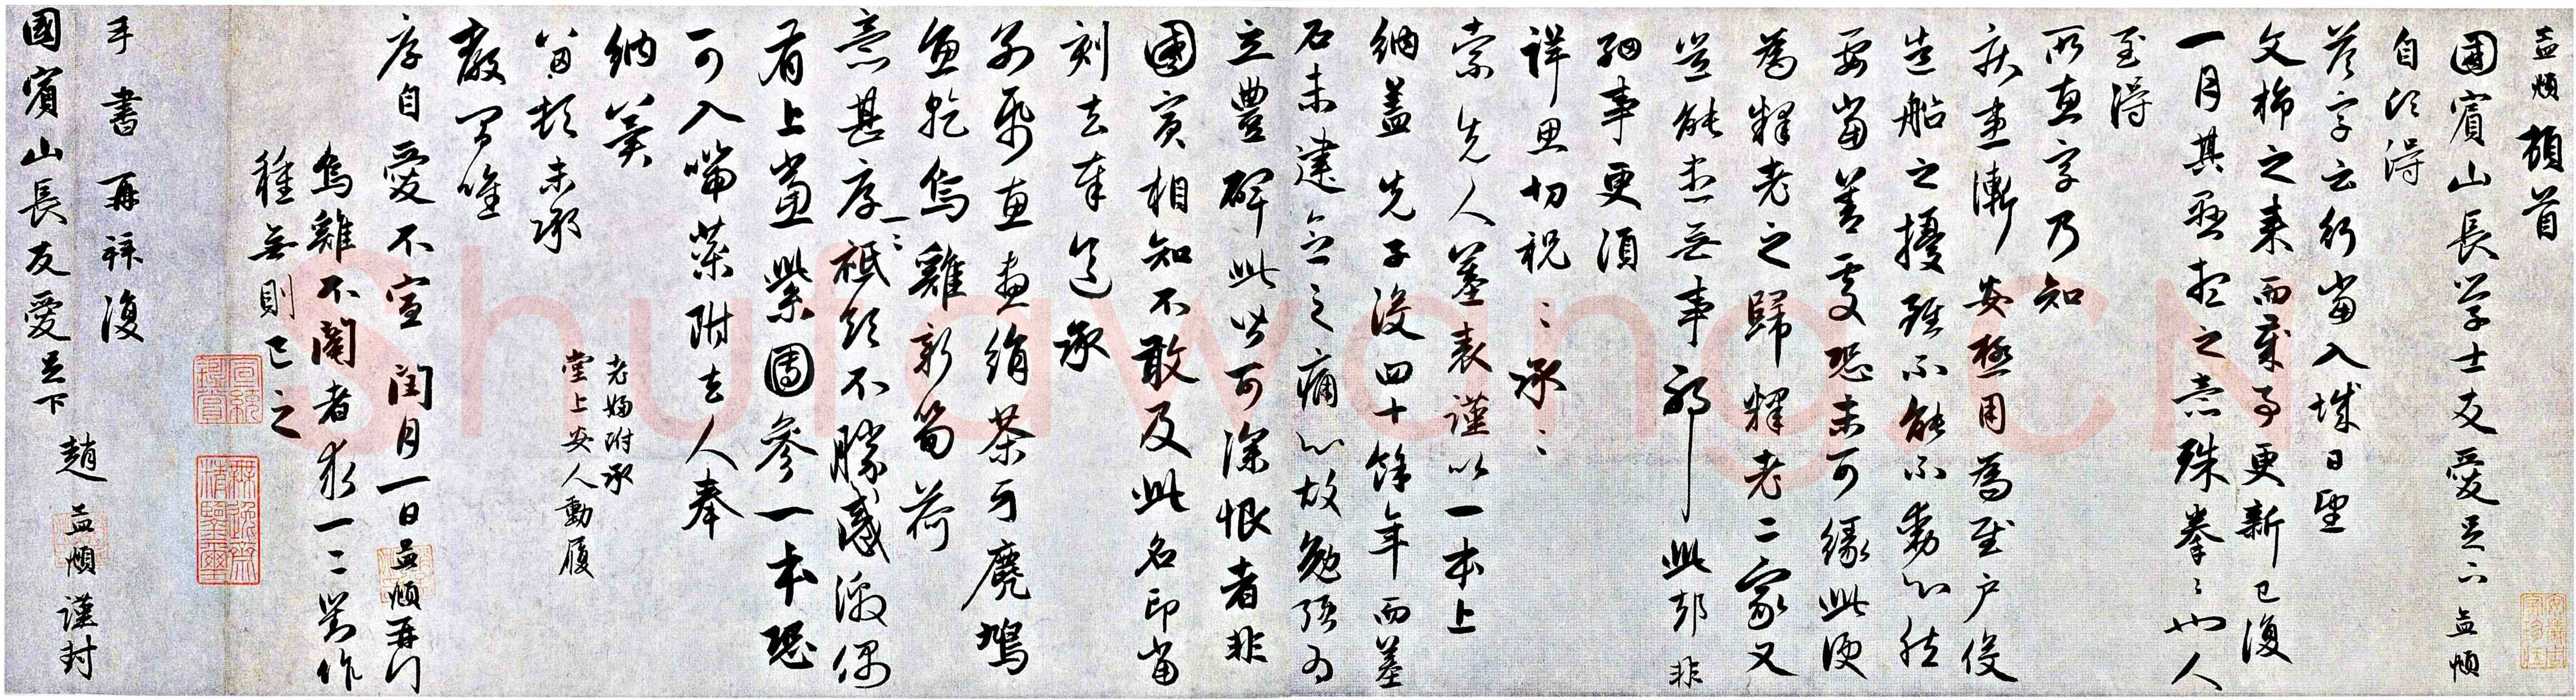 孟頫頓首
國賓山長學士友愛足下孟頫
自頃得
答字云行當入城日望
文旆之来而歲事更新已復
一月其垂想之意殊拳拳也人
至得
所惠字乃知
疾患漸安極用為慰户役
造船之擾雖不能不動心然
要當善處恐未可緣此便
為釋老之歸釋老二家又
豈能盡無事邪此却非
細事更須
詳思切祝切祝承承
索先人墓表謹以一本上
納蓋先子没四十餘年而墓
石未建言之痛心故勉强為
立豐碑此皆可深恨者非
國賓相知不敢及此名印當
刻去奉送承
不棄惠畫絹茶牙麂鳩
魚乾烏雞新筍荷
意甚厚一一祗領不勝感激偶
有上黨紫團參一本恐
可入喘藥附去人奉
納冀
笑
留頓未承
教間唯
厚自愛不宣閏月一日孟頫再拜
老婦附承
堂上安人動履
烏雞不閹者求一二對作
種無則已之
手書再拜復
國賓山長友愛足下
趙孟頫謹封
Shufawang.CN